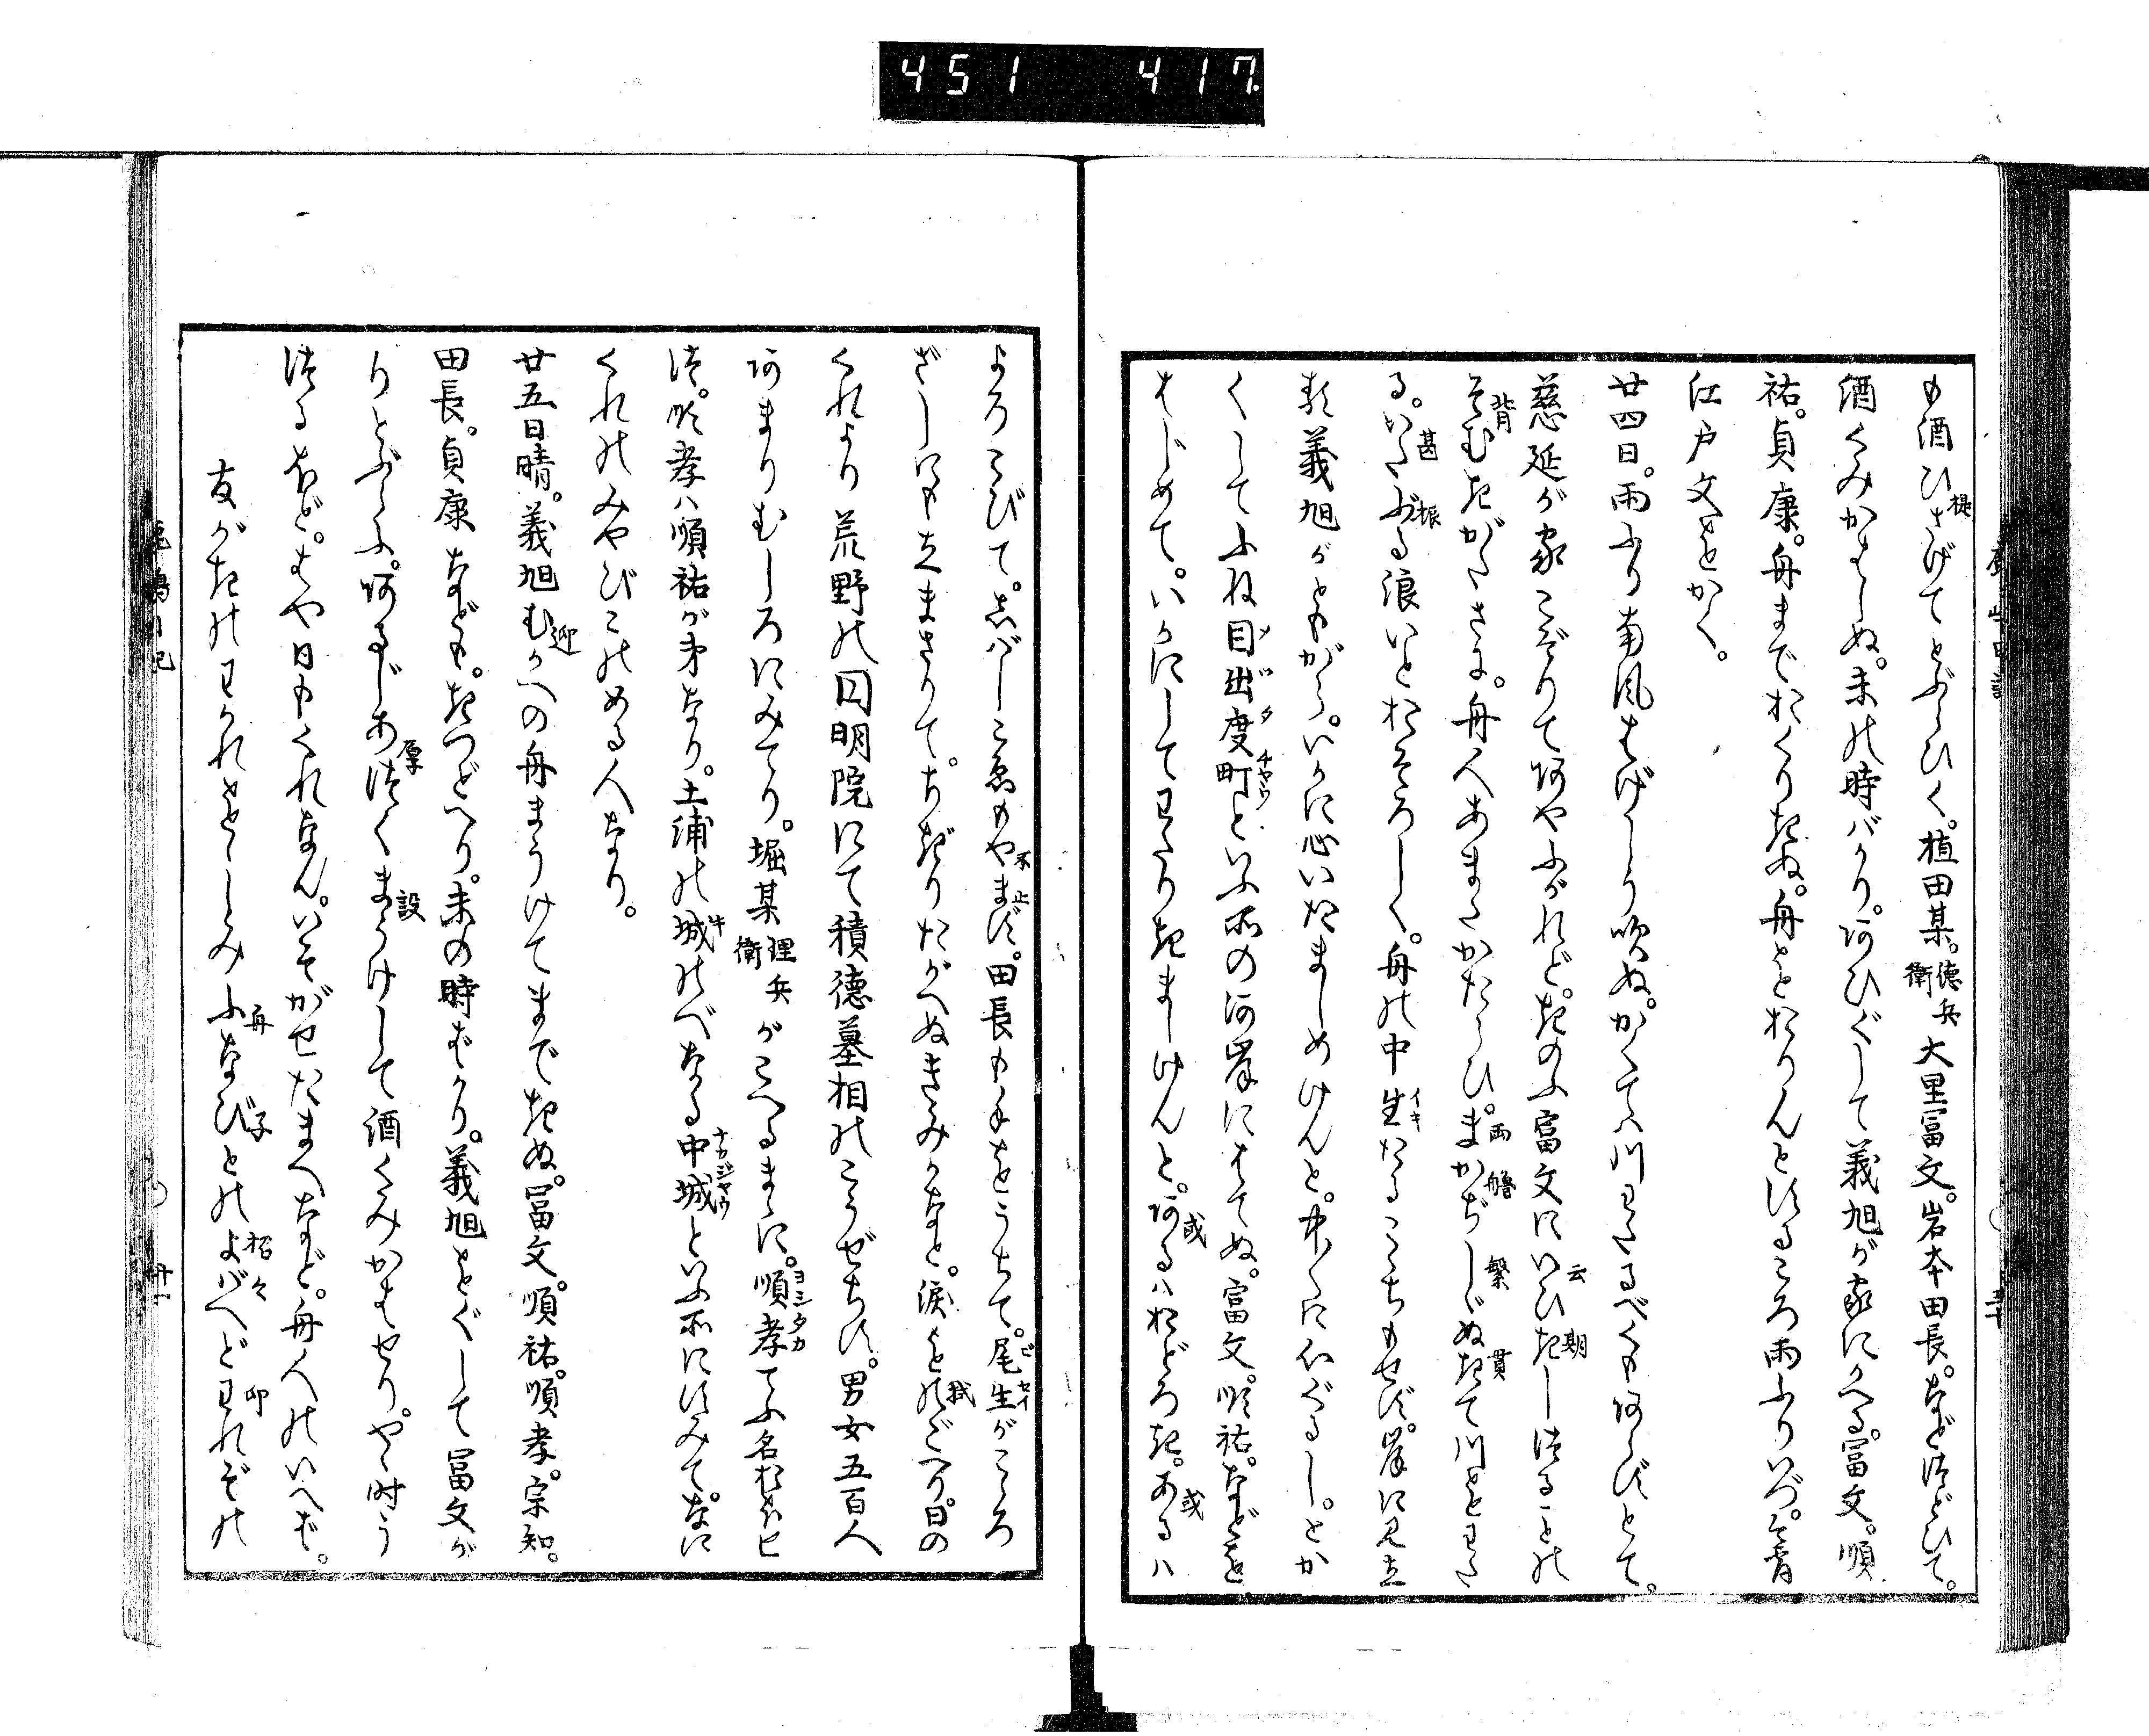 451 417
も酒ひさげてとぶらひく。植田某。徳兵衛大里冨文。岩本田長。など つどひて。
酒くみかはしぬ。未の時バかり。阿ひぐして義旭が家にかへる。冨文。順
祐。貞康。舟までおくりきぬ。舟をおりんとするころ雨ふりいづ。今宵
江戸文をかく。
廿四日。雨ふり南風はげしう吹ぬ。かくてハ川わたるべくも阿らずとて。
慈延が家こぞりて阿やふがれど。きのふ富文にいひきしつることの
そむきがたさに。舟人あまたかたらひ。まかぢしゞぬきて川をわた
る。いたぶる浪いとおそろしく。舟の中生たるこゝちもせず。岸に見立
義旭がともがら。いかに心いたましめけんと。中々に
くしてふね目出度町といふ所の河岸にはてぬ。富文。順祐。などを
はじめて。いかにしてわたりきましけんと。阿るハおどろき。あるハ
よろこびて。志バしこゑもやまず。田長も手をうちて。尾生がこゝろ
ざしにも立まさりて。ちぎりたがへぬきみかなと。涙をのごへり。日の
くれより荒野の円明院にて積徳墓相のこうぜちす。男女五百人
阿まりむしろにみてり。堀某理兵衛がこへるまゝに。順孝てふ名おほせ
つ。順孝ハ順祐が弟なり。土浦の城のべなる中城といふ所にすみて。なに
くれのみやびこのめる人なり。
廿五日晴。義旭むかへの舟まうけてまできぬ。冨文。順祐。順孝。宗知。
田長。貞康なども。きつどへり。未の時ばかり。義旭をぐして冨文が
りとぶらふ。阿るじあつくまうけして酒くみかはせり。やゝ時う
つるほど。はや日もくれなん。いそがせたまへなど。舟人のいへば。
友がきのわかれをしみふなびとのよばへどわれぞの